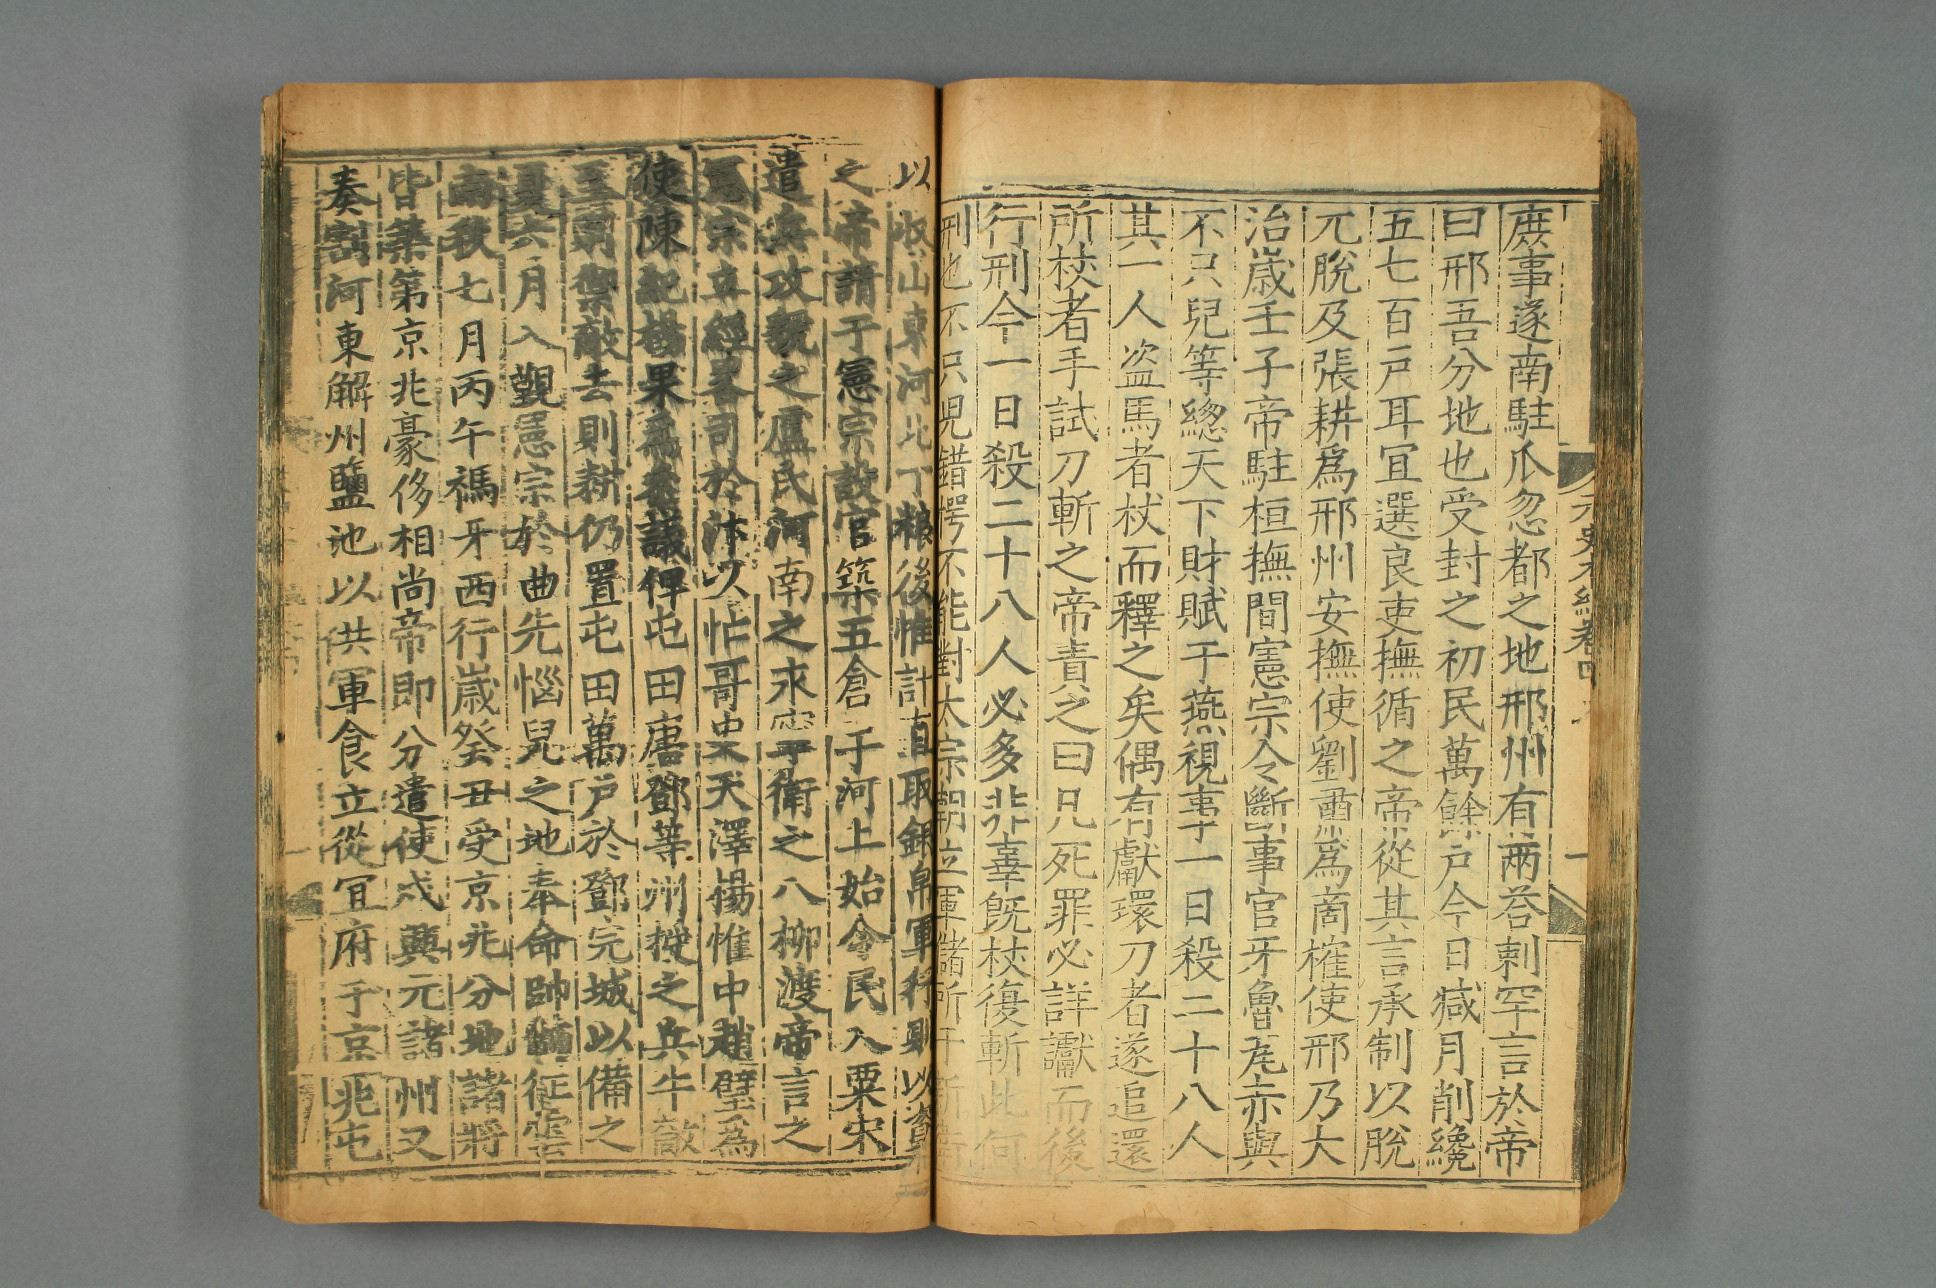 庶事遂南駐爪忽都之地邢州有兩荅剌罕言於帝
曰邢吾分地也受封之初民萬餘戶今日減月削纔
五七百戶耳宜選良吏撫循之帝從其言承制以脫
兀脫及張耕爲邢州安撫使劉肅爲商榷使邢乃大
治歲壬子帝駐桓撫間憲宗令斷事官牙魯花赤與
不只兒等緫天下財賦于燕視事一日殺二十八人
其一人盗馬者杖而釋之矣偶有獻環刀者遂追還
所杖者手試刀斬之帝責之曰凡死罪必詳讞而後
行刑今一日殺二十八人必多非辜旣杖復斬此何
刑也不只兒錯愕不能對太宗朝立軍儲所于新衛
以收山東河北丁粮後惟計直取銀帛軍行則以資
之帝請于憲宗設官築五倉于河上始令民入粟宋
遣兵攻虢之盧氏河南之永寧衛之八柳渡帝言之
憲宗立經畧司於汴以忙哥史天澤楊惟中趙璧爲
使陳紀楊果爲叅議俾屯田唐鄧等州授之兵牛敵
至則禦敵去則耕仍置屯田萬戶於鄧完城以備之
夏六月入覲憲宗於曲先惱兒之地奉命帥師征雲
南秋七月丙午禡牙西行歲癸丑受京兆分地諸將
皆築第京兆豪侈相尚帝即分遣使戍興元諸州又
奏割河東解州鹽池以供軍食立從宜府于京兆屯
元史本紀卷四